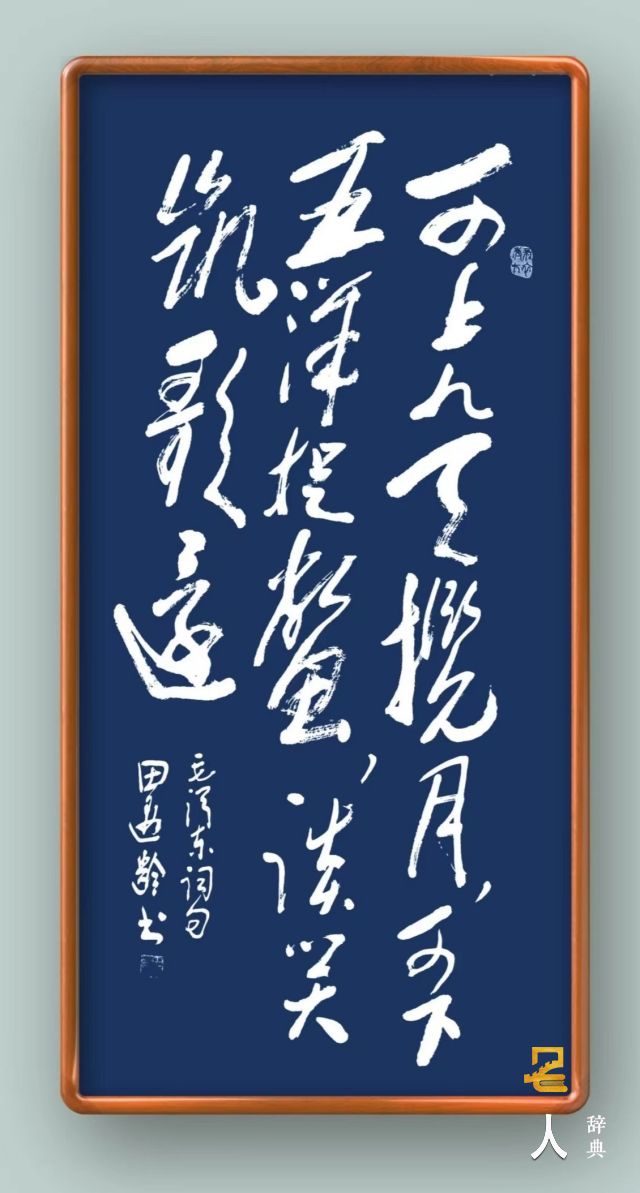 可上九天揽月，可下
五洋捉鳖，谈笑
凯歌還
毛泽东词句
田龄书
名人
辞典